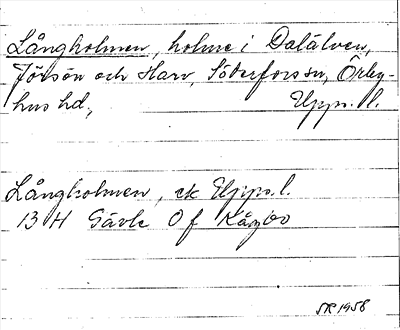 Långholmen, holme i Dalälven,
Jörsön och Harv, Söderforssn, Örby-
hus hd, Upps. l.
Långholmen, ek Upps. l.
13 H Gävle 0 f Kågbo
SR 1958